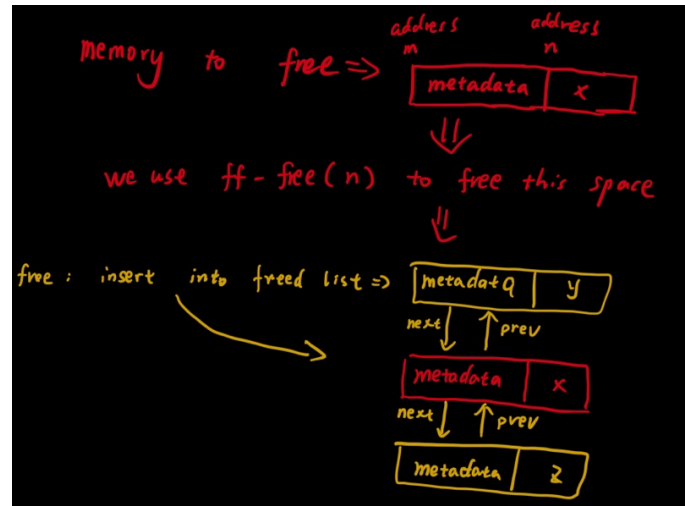 address address
m n
memory to free =>
metadata x
we use ff-free(n) to free this space
free : insert into freed list =>
metadata y
next prev
metadata x
next prev
metadata z